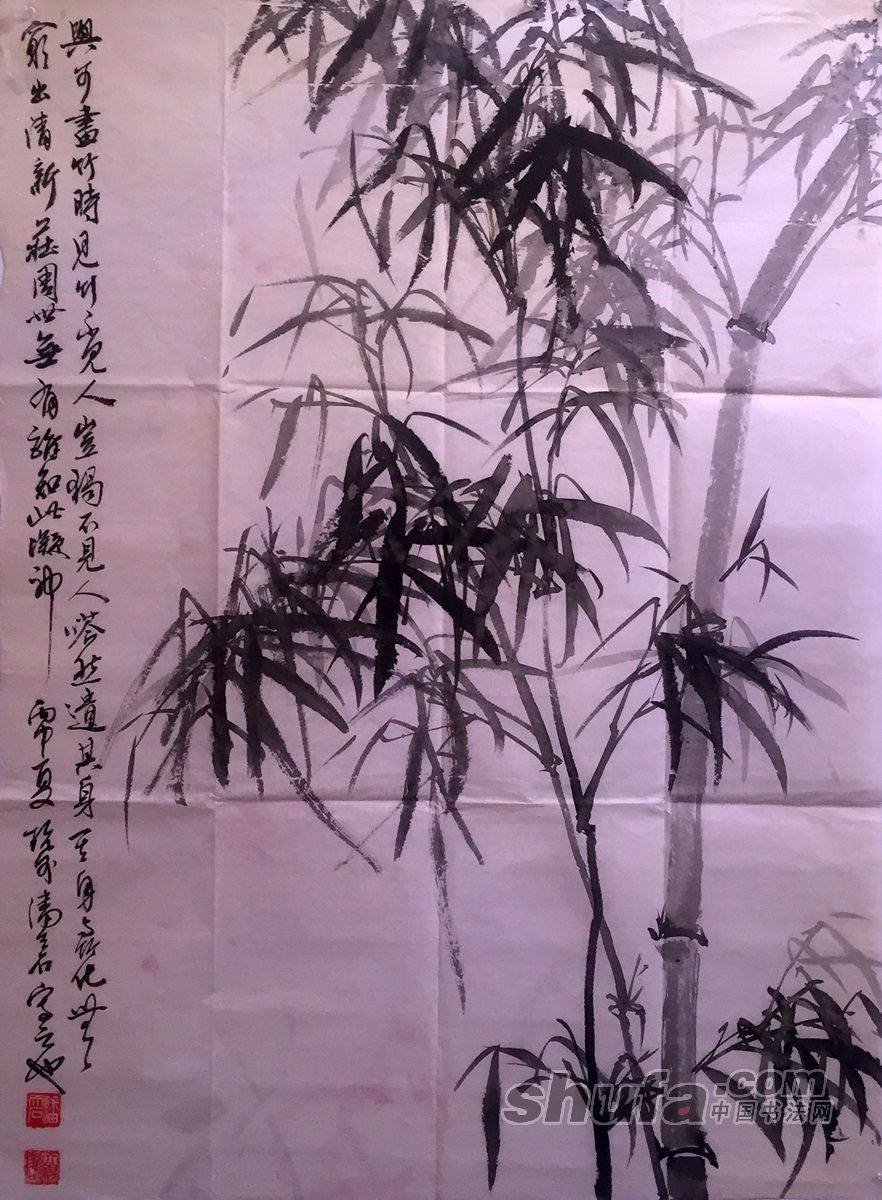 與可畫竹時見竹不見人豈獨不見人嗒然遺其身其身與竹化無
窮出清新莊周世無有誰知此凝神 夏
shufa.com
中国书法网